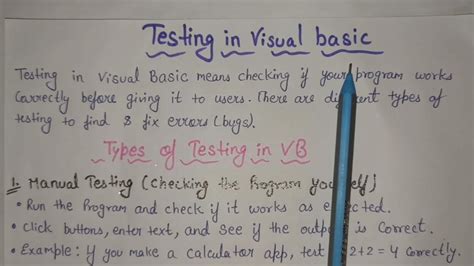 Testing in Visual basic
Testing in Visual Basic means checking if your program works
Correctly before giving it to users. There are different types of
testing to find & fix errors (bugs).
Types of Testing in VB
1. Manual Testing (Checking the Program yourself)
• Run the Program and check if it works as expected.
• Click buttons, enter text, and see if the output is Correct.
• Example: If you make a Calculator app, test 2+2=4 Correctly.